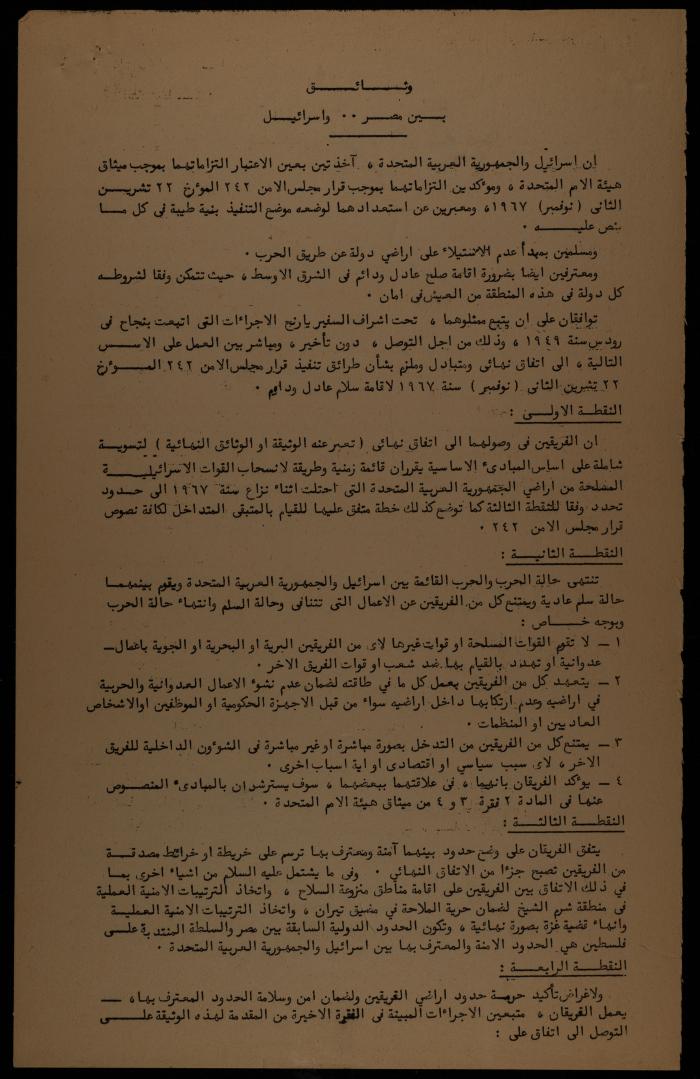 وثـــــائـــــق
بـــين مصـــر ٠٠ واسرائيـــل
ان اسرائيل والجمهورية العربية المتحدة ، آخذتين بعين الاعتبار التزاماتهما بموجب ميثاق
هيئة الامم المتحدة ، ومؤكدين التزاماتهما بموجب قرار مجلس الامن ٢٤٢ المؤرخ ٢٢ تشريـــن
الثاني ( نوفمبر ) ١٩٦٧، ومعبرين عن استعدادهما لوضعه موضع التنفيذ بنية طيبة فى كل مـــا
ينص عليـــــه ٠
ومسلمين بمبدأ عدم الاستيلاء على اراضي دولة عن طريق الحرب ٠
ومعترفين ايضا بضرورة اقامة صلح عادل ودائم فى الشرق الاوسط ، حيث تتمكن وفقا لشروطـــه
كل دولة فى هذه المنطقة من العيش فى امان ٠
توافقان على ان يتبع ممثلوهما ، تحت اشراف السفير يارنج الاجراءات التى اتبعت بنجاح فى
رودس سنة ١٩٤٩ ، وذلك من اجل التوصل ، دون تأخير ، ومباشر بين العمل على الاســـس
التالية ، الى اتفاق نهائى ومتبادل وملزم بشأن طرائق تنفيذ قرار مجلس الامن ٢٤٢ المـــؤرخ
٢٢ تشرين الثانى ( نوفمبر ) سنة ١٩٦٧ لاقامة سلام عادل ودائم ٠
النقطـة الاولـــى :
ان الفريقين فى وصولهما الى اتفاق نهائى ( تعبر عنه الوثيقة او الوثائق النهائية ) لتسويـة
شاملة على اساس المبادىء الاساسية يقرران قائمة زمنية وطريقة لانسحاب القوات الاسرائيليـــة
المسلحة من اراضي الجمهورية العربية المتحدة التى احتلت اثناء نزاع سنة ١٩٦٧ الى حـــدود
تحدد وفقا للنقطة الثالثة كما توضع كذلك خطة متفق عليها للقيام بالمتبقى المتداخل لكافة نصوص
قرار مجلس الامن ٢٤٢ ٠
النقطـة الثانيـــة :
تنتهى حالة الحرب والحرب القائمة بين اسرائيل والجمهورية العربية المتحدة ويقوم بينهمـــا
حالة سلم عادية ويمتنع كل من الفريقين عن الاعمال التى تتنافى وحالة السلم وانتهاء حالة الحرب
وبوجه خـــــاص :
١ – لا تقوم القوات المسلحة او قوات غيرها لاى من الفريقين البرية او البحرية او الجوية باعمال
عدوانية او تهدد بالقيام بها ضد شعب او قوات الفريق الاخر ٠
٢ – يتعهد كل من الفريقين بعمل كل ما في طاقته لضمان عدم نشوء الاعمال العدوانية والحربية
في اراضيه وعدم ارتكابها داخل اراضيه سواء من قبل الاجهزة الحكومية او الموظفين او الاشخاص
العاديين او المنظمات ٠
٣ – يمتنع كل من الفريقين من التدخل بصورة مباشرة او غير مباشرة فى الشوءون الداخلية للفريق
الاخر ، لاى سبب سياسي او اقتصادى او اية اسباب اخرى ٠
٤ – يوءكد الفريقان بانهما ، فى علاقتهما ببعضهما ، سوف يسترشدان بالمبادىء المنصـــوص
عنها فى المادة ٢ فقرة ٣ و ٤ من ميثاق هيئة الامم المتحدة ٠
النقطـــة الثالثـــة :
يتفق الفريقان على وضع حدود بينهما آمنة ومعترف بها ترسم على خريطة او خرائط مصدقــة
من الفريقين تصبح جزءا من الاتفاق النهائي ٠ وفى ما يشتمل عليه السلام من اشياء اخرى بمـــا
في ذلك الاتفاق بين الفريقين على اقامة مناطق منزوعة السلاح ، واتخاذ الترتيبات الامنية العملية
فى منطقة شرم الشيخ لضمان حرية الملاحة في مضيق تيران ، واتخاذ الترتيبات الامنية العمليـــة
وانهاء قضية غزة بصورة نهائية ، وتكون الحدود الدولية السابقة بين مصر والسلطة المنتدبة علـــى
فلسطين هي الحدود الامنة والمعترف بها بين اسرائيل والجمهورية العربية المتحدة ٠
النقطـــة الرابعـــة :
ولاغراض تأكيد حرمـة حدود اراضي الفريقين ولضمان امن وسلامة الحدود المعترف بها ،
يعمل الفريقان ، متبعين الاجراءات المبينة فى الفقرة الاخيرة من المقدمة لهذه الوثيقة علـــى
التوصل الى اتفاق على :